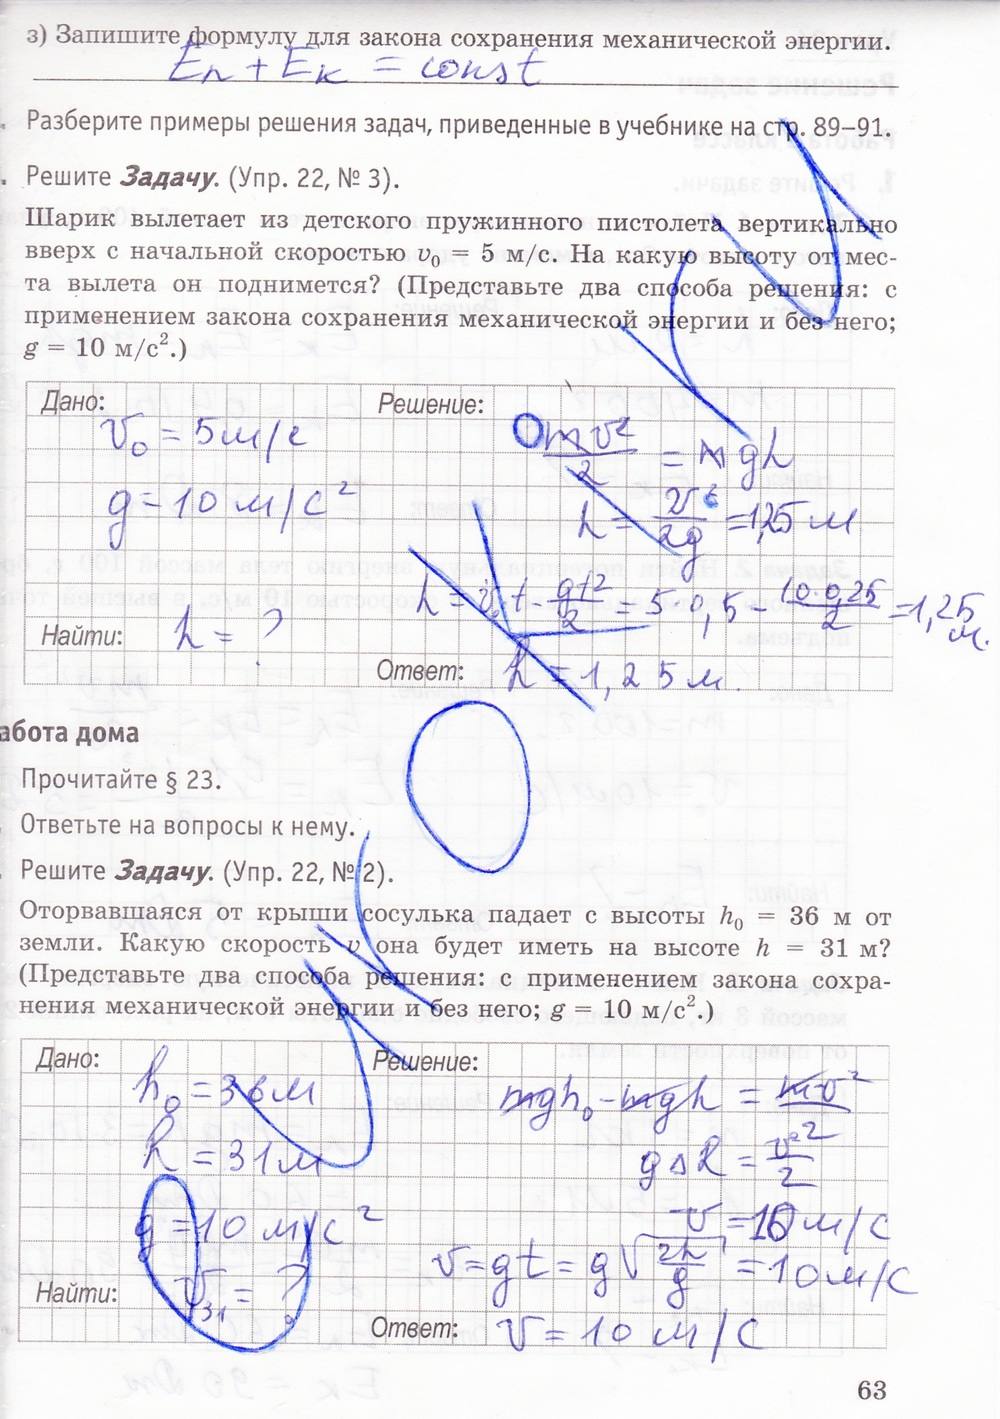 з) Запишите формулу для закона сохранения механической энергии.
Eп + Eк = const
Разберите примеры решения задач, приведенные в учебнике на стр. 89–91.
Решите Задачу. (Упр. 22, № 3).
Шарик вылетает из детского пружинного пистолета вертикально
вверх с начальной скоростью v₀ = 5 м/с. На какую высоту от мес-
та вылета он поднимется? (Представьте два способа решения: с
применением закона сохранения механической энергии и без него;
g = 10 м/с².)
Дано: Решение:
v₀ = 5 м/с
mv²/2 = mgh
g = 10 м/с²
h = v²/2g = 1,25 м
h = v₀t - gt²/2 = 5·0,5 - 10·0,25/2 = 1,25 м.
Найти: h = ?
Ответ: h = 1,25 м.
абота дома
Прочитайте § 23.
Ответьте на вопросы к нему.
Решите Задачу. (Упр. 22, № 2).
Оторвавшаяся от крыши сосулька падает с высоты h₀ = 36 м от
земли. Какую скорость v она будет иметь на высоте h = 31 м?
(Представьте два способа решения: с применением закона сохра-
нения механической энергии и без него; g = 10 м/с².)
Дано: Решение:
h₀ = 36 м
mgh₀ - mgh = mv²/2
h = 31 м
g∆h = v²/2
g = 10 м/с²
v = 10 м/с
v = gt = g√(2h/g) = 10 м/с
Найти: v₃₁ = ?
Ответ: v = 10 м/с
63